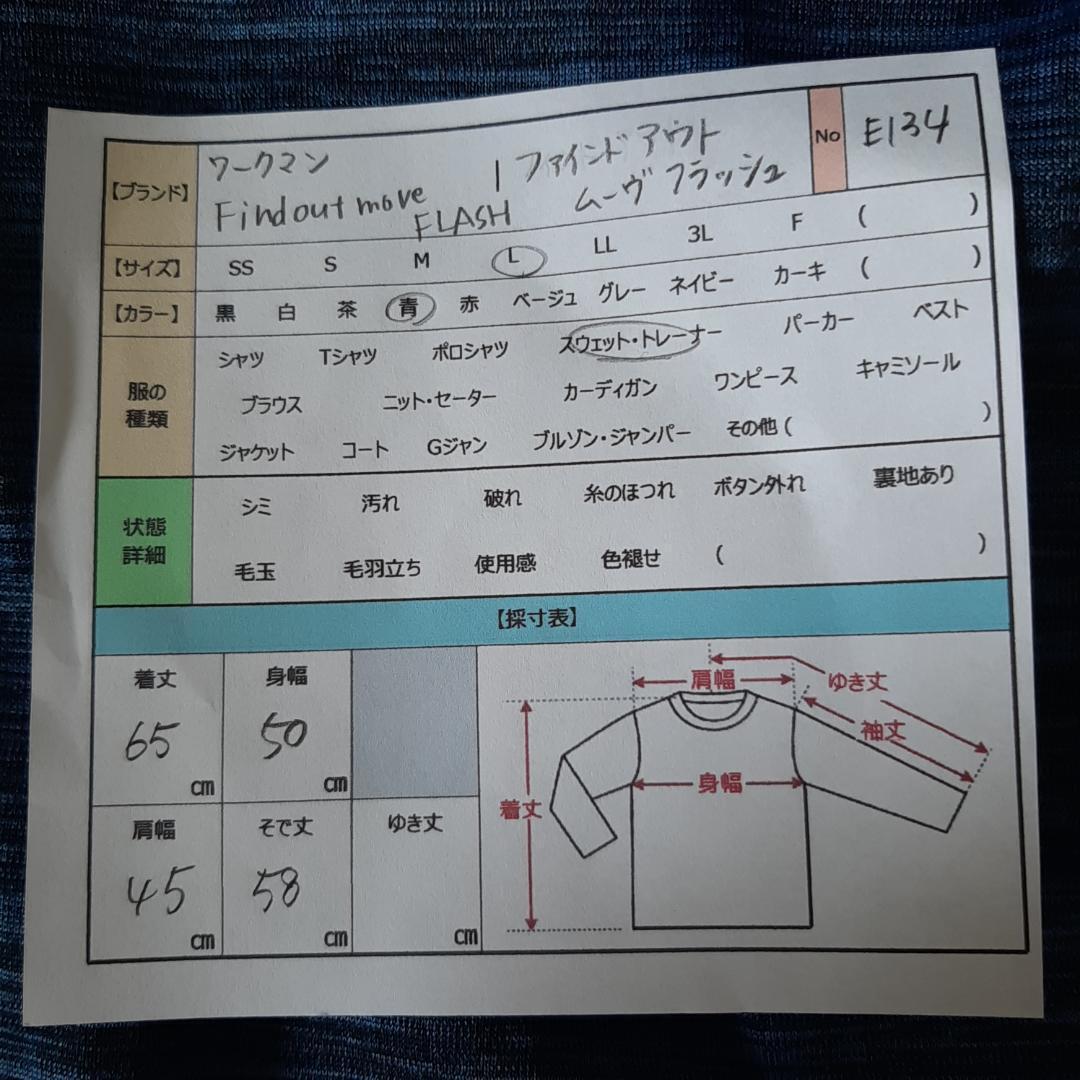 【ブランド】 ワークマン | ファインド アウト No E134
Find out move FLASH ムーヴ フラッシュ
【サイズ】 SS S M L LL 3L F ( )
【カラー】 黒 白 茶 青 赤 ベージュ グレー ネイビー カーキ ( )
服の種類 シャツ Tシャツ ポロシャツ スウェット・トレーナー パーカー ベスト
ブラウス ニット・セーター カーディガン ワンピース キャミソール
ジャケット コート Gジャン ブルゾン・ジャンパー その他 ( )
状態詳細 シミ 汚れ 破れ 糸のほつれ ボタン外れ 裏地あり
毛玉 毛羽立ち 使用感 色褪せ ( )
【採寸表】
着丈 身幅
65 cm 50 cm
肩幅 そで丈 ゆき丈
45 cm 58 cm cm
肩幅 ゆき丈
袖丈
身幅
着丈